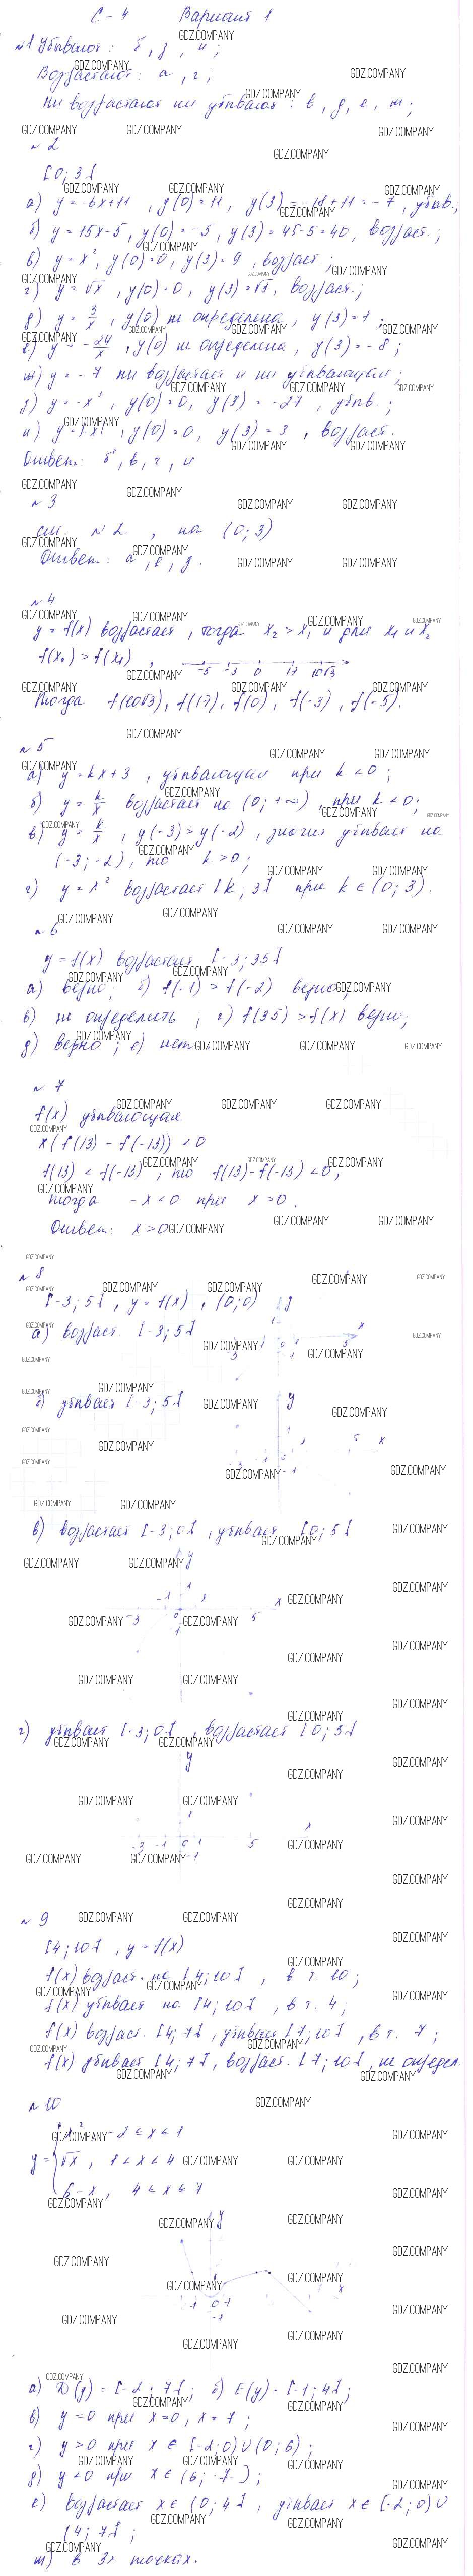 С-4 Вариант 1
GDZ.COMPANY
№1 Убывают: б, з, и;
Возрастают: а, г;
Ни возрастают ни убывают: в, д, е, ж;
№2
[0; 3]
а) y = -6x+11, y(0)=11, y(3)=-18+11=-7, убыв.;
б) y = 15x-5, y(0)=-5, y(3)=45-5=40, возраст.;
в) y = x², y(0)=0, y(3)=9, возраст.;
г) y = √x, y(0)=0, y(3)=√3, возраст.;
д) y = 3/x, y(0) не определена, y(3)=1;
е) y = -24/x, y(0) не определена, y(3)=-8;
ж) y = -7 ни возрастает и ни убывающая;
з) y = -x³, y(0)=0, y(3)=-27, убыв.;
и) y = |x|, y(0)=0, y(3)=3, возраст.
Ответ: б, в, г, и
№3
см. №2, на (0; 3)
Ответ: а, е, д.
№4
y = f(x) возрастает, тогда x₂ > x₁ и для x₁ и x₂
f(x₂) > f(x₁),
-5 -3 0 17 10√3
Тогда f(10√3), f(17), f(0), f(-3), f(-5).
№5
а) y = kx+3, убывающая при k<0;
б) y = k/x возрастает на (0; +∞), при k<0;
в) y = k/x, y(-3) > y(-2), значит убывает на
(-3; -2), то k>0;
г) y = x² возрастает [k; 3] при k ∈ (0; 3).
№6
y = f(x) возрастает [-3; 35]
а) верно; б) f(-1) > f(-2) верно;
в) не определить; г) f(35) > f(x) верно;
д) верно; е) нет
№7
f(x) убывающая
x(f(13) - f(-13)) < 0
f(13) < f(-13), то f(13)-f(-13)<0,
тогда -x<0 при x>0.
Ответ: x>0
№8
[-3; 5], y = f(x), (0; 0)
а) возраст. [-3; 5]
б) убывает [-3; 5]
в) возрастает [-3; 0], убывает [0; 5]
г) убывает [-3; 0], возрастает [0; 5]
№9
[4; 10], y = f(x)
f(x) возраст. на [4; 10], в т. 10;
f(x) убывает на [4; 10], в т. 4;
f(x) возраст. [4; 7], убывает [7; 10], в т. 7;
f(x) убывает [4; 7], возраст. [7; 10], не определ.
№10
x², -2≤x≤1
y = √x, 1<x<4
6-x, 4≤x≤7
а) D(y) = [-2; 7]; б) E(y) = [-1; 4];
в) y=0 при x=0, x=7;
г) y>0 при x ∈ [-2; 0) ∪ (0; 6);
д) y<0 при x ∈ (6; -7);
е) возрастает x ∈ (0; 4], убывает x ∈ [-2; 0) ∪
[4; 7];
ж) в 3х точках.